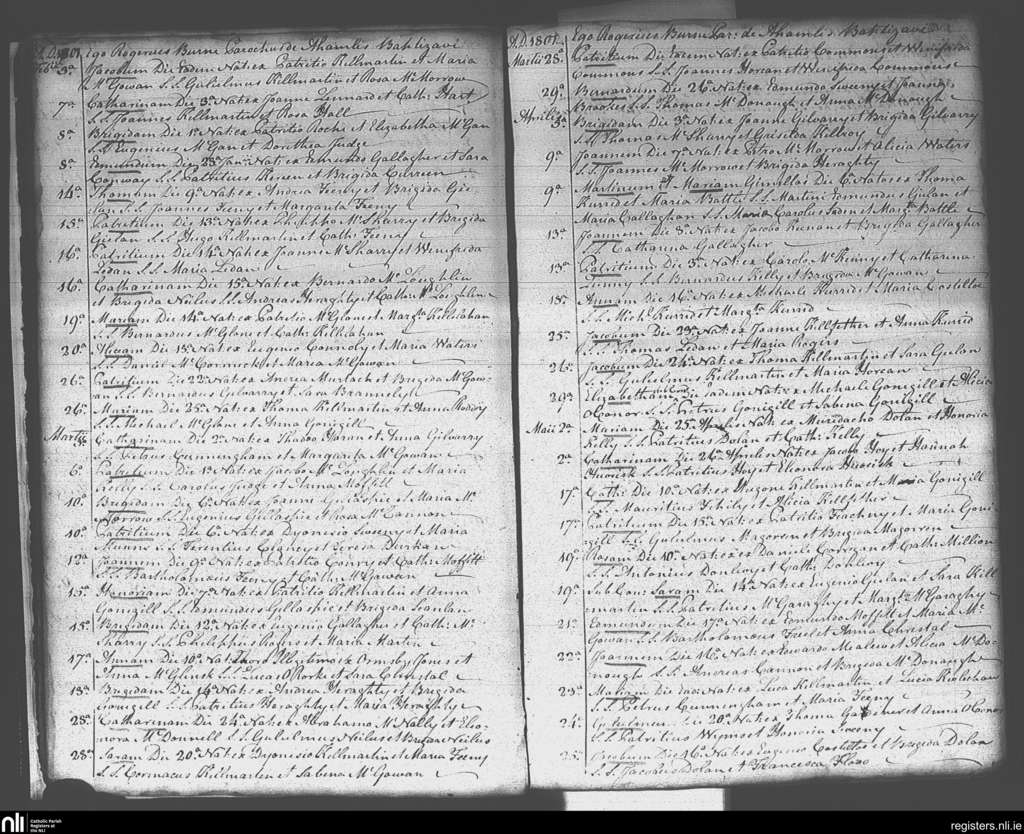 A.D. 1801. Ego Rogerius Burne Parochus de Ahamlis Baptizavi
5a Jacobum Die Eadem Nat: ex Patritio Killmartin et Maria
McGowan S.S. Gulielmus Killmartin et Rosa McMorrow
7a Catharinam Die 3a Nat: ex Joanne Linnard et Cath: Hart
S.S. Joannes Killmartin et Rosa Hall
8a Brigidam Die 1a Nat: ex Patritio Roche et Elizabetha McGan
S.S. Eugenius McGan et Dorothea Judge
8a Edmundum Die 25a Jan: Nat: ex Edmundo Gallagher et Sara
Conway S.S. Patritius et Brigida
14a Thomam Die 9a Nat: ex Andrea Feeny et Brigida
S.S. Joannes Feeny et Margarita Feeny
15a Patritium Die 13a Nat: ex Philippo McSkerry et Brigida
Gillan S.S. Hugo Killmartin et Cath: Feeny
16a Patritium Die 14a Nat: ex Joanne McSharry et Winifrida
Ledan S.S. Maria Ledan
16a Catharinam Die 15a Nat: ex Bernardo McLoughlin
et Brigida Neilus S.S. Andreas Heraghty et Cath: McLoughlin
19a Mariam Die 14a Nat: ex Patritio McGlone et Marg:
S.S. Bernardus McGlone et Cath:
20a Die 15a Nat: ex Eugenio Connoly et Maria Waters
S.S. Daniel McCormick et Maria McGowan
26a Patritium Die 22a Nat: ex Andrea Murtach et Brigida McGow-
an S.S. Bernardus Gilvarry et Sara
26a Mariam Die 25a Nat: ex Thoma Killmartin et Anna
S.S. Michael McGlone et Anna Gonigill
Martii Catharinam Die 2a Nat: ex Thadeo Haran et Anna Gilvarry
S.S. Petrus Cunningham et Margarita McGowan
6a Patritium Die 1a Nat: ex Jacobo McLoughlin et Maria
Reilly S.S. Carolus Judge et Anna Moffitt
10a Brigidam Die 6a Nat: ex Joanne Gillaspie et Maria Mc
Morrow S.S. Eugenius Gillaspie et Rosa McCannon
10a Patritium Die 6a Nat: ex Dyonisio Sweeny et Maria
S.S. Terentius et Teresa Durkan
12a Joannem Die 9a Nat: ex Patritio Conry et Cath: Moffitt
S.S. Bartholomaeus Feeny et Cath: McGowan
15a Honoriam Die 7a Nat: ex Patritio Killmartin et Anna
Gonigill S.S. Edmundus Gillaspie et Brigida Scanlan
15a Brigidam Die 12a Nat: ex Eugenio Gallagher et Cath: Mc
Sharry S.S. Philippus Roger et Maria Hartin
17a Annam Die 10a Nat: Ormsby Jones et
Anna McGlinck S.S. Lucas O Rorke et Sara Chrystal
18a Brigidam Die 14a Nat: ex Andrea Heraghty et Brigida
Gonigill S.S. Patritius Heraghty et Maria Heraghty
28a Catharinam Die 24a Nat: ex Abrahamo McNally et Eleo-
nora McDonnell S.S. Gulielmus Neilus et Neilus
28a Saram Die 20a Nat: ex Dyonisio Killmartin et Maria Feeny
S.S. Cormacus Killmartin et Sabina McGowan
A.D. 1801. Ego Rogerius Burne Par: de Ahamlis Baptizavi
Martii 28a Patritium Die Eadem Nat: ex Patritio Commons et Winifrida
Commons S.S. Joannes Horean et Winifrida Commons
29a Bernardum Die 26a Nat: ex Edmundo Sweeny et
Brookes S.S. Thomas McDonough et Anna McDonough
Aprilis 5a Brigidam Die 3a Nat: ex Joanne Gilvarry et Brigida Gilvarry
S.S. Thomas McSharry et Kilroy
9a Joannem Die 7a Nat: ex Petro McMorrow et Alicia Waters
S.S. Joannes McMorrow et Brigida Heraghty
9a Martinum et Mariam Gimillos Die 6a Natos ex Thoma
Kurrid et Maria Battle S.S. Martin Edmundus Gillan et
Maria Callaghan S.S. Carolus Feden et Marg: Battle
13a Joannem Die 8a Nat: ex Jacobo Keenan et Brigida Gallagher
S.S. Catharina Gallagher
13a Patritium Die 3a Nat: ex Carolo McKinny et Catharina
S.S. Bernardus Kelly et Brigida McGowan
18a Annam Die 16a Nat: ex Michaele Kurrid et Maria Costilloe
S.S. Mich: Kurrid et Marg: Kurrid
25a Jacobum Die 23a Nat: ex Joanne Killfether et Anna Kurrid
S.S. Thomas Ledan et Maria Rogirs
26a Jacobum Die 24a Nat: ex Thoma Killmartin et Sara Gillan
S.S. Gulielmus Killmartin et Maria Horean
29a Elizabetham Die Eadem Nat: ex Michaele Gonigill et Alicia
O Conor S.S. Petrus Gonigill et Sabina Gonigill
Maii 2a Mariam Die 25a Aprilis Nat: ex Muridacho Dolan et Honoria
Kelly S.S. Patritius Dolan et Cath: Kelly
2a Catharinam Die 26a Aprilis Nat: ex Jacobo Hoy et Hannah
S.S. Patritius Hoy et Elionora
17a Cath: Die 10a Nat: ex Hugone Killmartin et Maria Gonigill
S.S. Mauritius Tchily et Alicia Killfether
17a Patritium Die 15a Nat: ex Patritio Feachny et Maria Goni-
gill S.S. Gulielmus Magorren et Brigida Magorren
19a Rosam Die 10a Nat: ex Daniele et Cath: Million
S.S. Antonius Donlevy et Cath: Donlevy
19a Sub Con: Saram Die 14a Nat: ex Eugenio Gillan et Sara Kill-
martin S.S. Patritius McGaraghy et Marg: McGaraghy
21a Edmundum Die 17a Nat: ex Edmundo Moffitt et Maria Mc
Gowan S.S. Bartholomeus et Anna Chrystal
22a Joannem Die 16a Nat: ex Edwardo et Alicia McDo-
nough S.S. Andreas Cannon et Brigida McDonough
23a Mariam Die Eadem Nat: ex Luca Killmartin et Lucia
S.S. Petrus Cunningham et Maria Feeny
24a Gulielmum Die 20a Nat: ex Thoma et Anna O Conor
S.S. Patritius Wynne et Honoria Sweeny
25a Jacobum Die 16a Nat: ex Eugenio Costilloe et Brigida Dolan
S.S. Jacobus Dolan et Francesca
nli Catholic Parish
Registers at
the NLI
registers.nli.ie